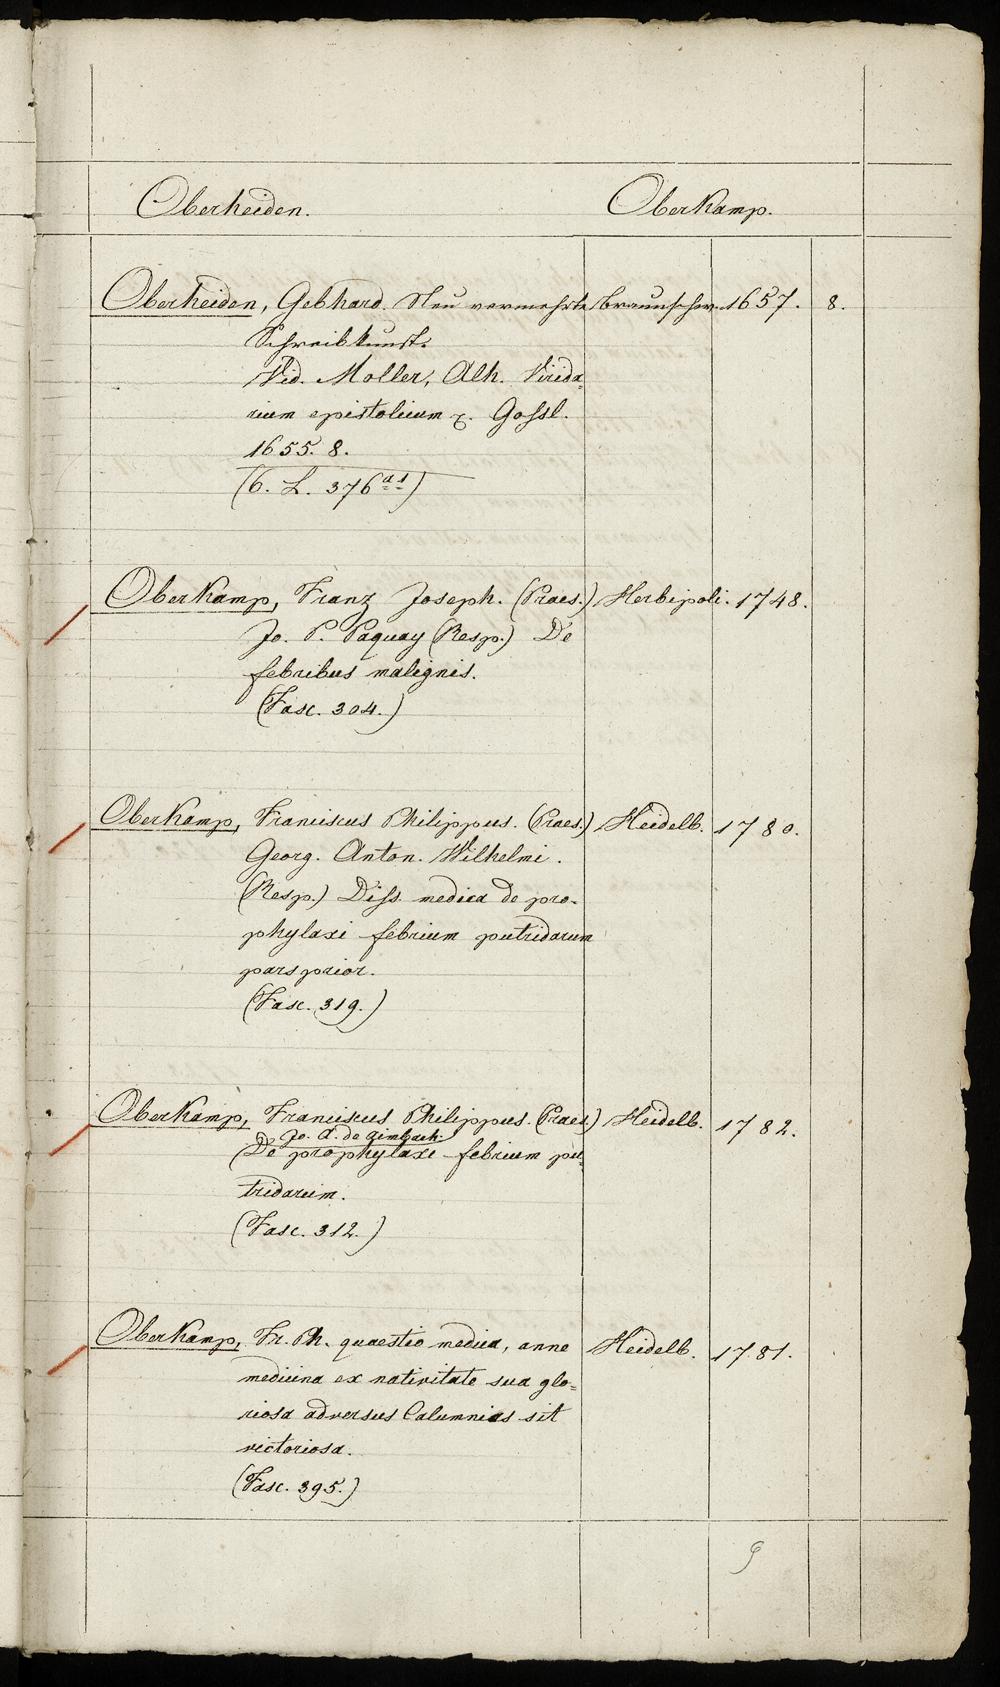 Oberheiden. Oberkamp.
Oberheiden, Gebhard. Neu vermehrte Braunschw. 1657. 8.
Schreibkunst.
Vid. Moller, Alh. Virida-
rium epistolicum &. Gossl.
1655. 8.
(6. L. 376 as)
Oberkamp, Franz Joseph. (Praes.) Herbipoli. 1748.
Jo. P. Paquay (Resp.) De
febribus malignis.
(Fasc. 304.)
Oberkamp, Franciscus Philippus. (Praes.) Heidelb. 1780.
Georg. Anton. Wilhelmi.
(Resp.) Diss. medica de pro-
phylaxi febrium putridarum
pars prior.
(Fasc. 319.)
Oberkamp, Franciscus Philippus. (Praes.) Heidelb. 1782.
Jo. A. de
De prophylaxi febrium pu-
tridarum.
(Fasc. 312.)
Oberkamp, Fr. Ph. quaestio medica, anne Heidelb. 1781.
medicina ex nativitate sua glo-
riosa adversus Calumnias sit
victoriosa.
(Fasc. 395.)